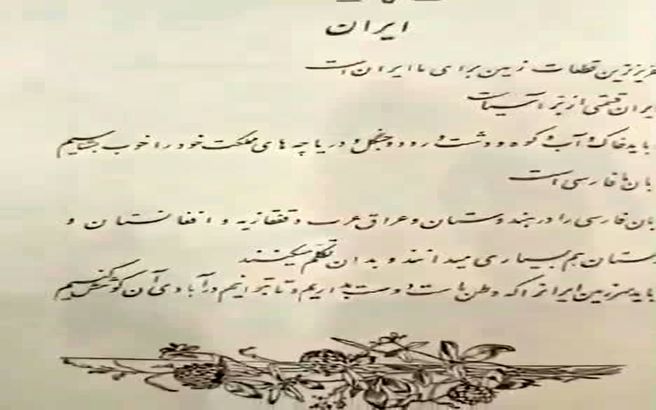 ایران
عزیزترین قطعات زمین برای ما ایران است
ایران قسمتی از بر آسیاست
باید خاک و آب و کوه و دشت و رود و جنگل و دریاچه های مملکت خود را خوب بشناسیم
بان ما فارسی است
بان فارسی را در هندوستان و عراق عرب و قفقازیه و افغانستان و
ستان هم بسیاری میدانند و بدان تکلم میکنند
باید سرزمین ایران را که وطن ما است دوست بداریم و تا بتوانیم در آبادی آن کوشش کنیم